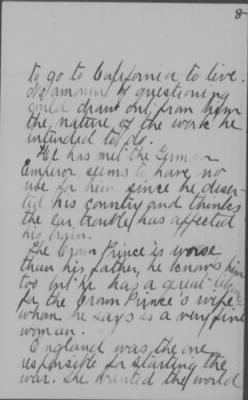 8
to go to California to live.
No amount of questioning
could draw out from him
the nature of the work he
intended to do.
He has met the German
Emperor, seems to have no
use for him since he deser-
ted his country and thinks
the ear trouble has affected
his brain.
The Crown Prince is worse
than his father, he knows him
too but he has a great
for the Crown Prince's wife
whom he says is a very fine
woman.
England was the one
responsible for starting the
war. She wanted the world